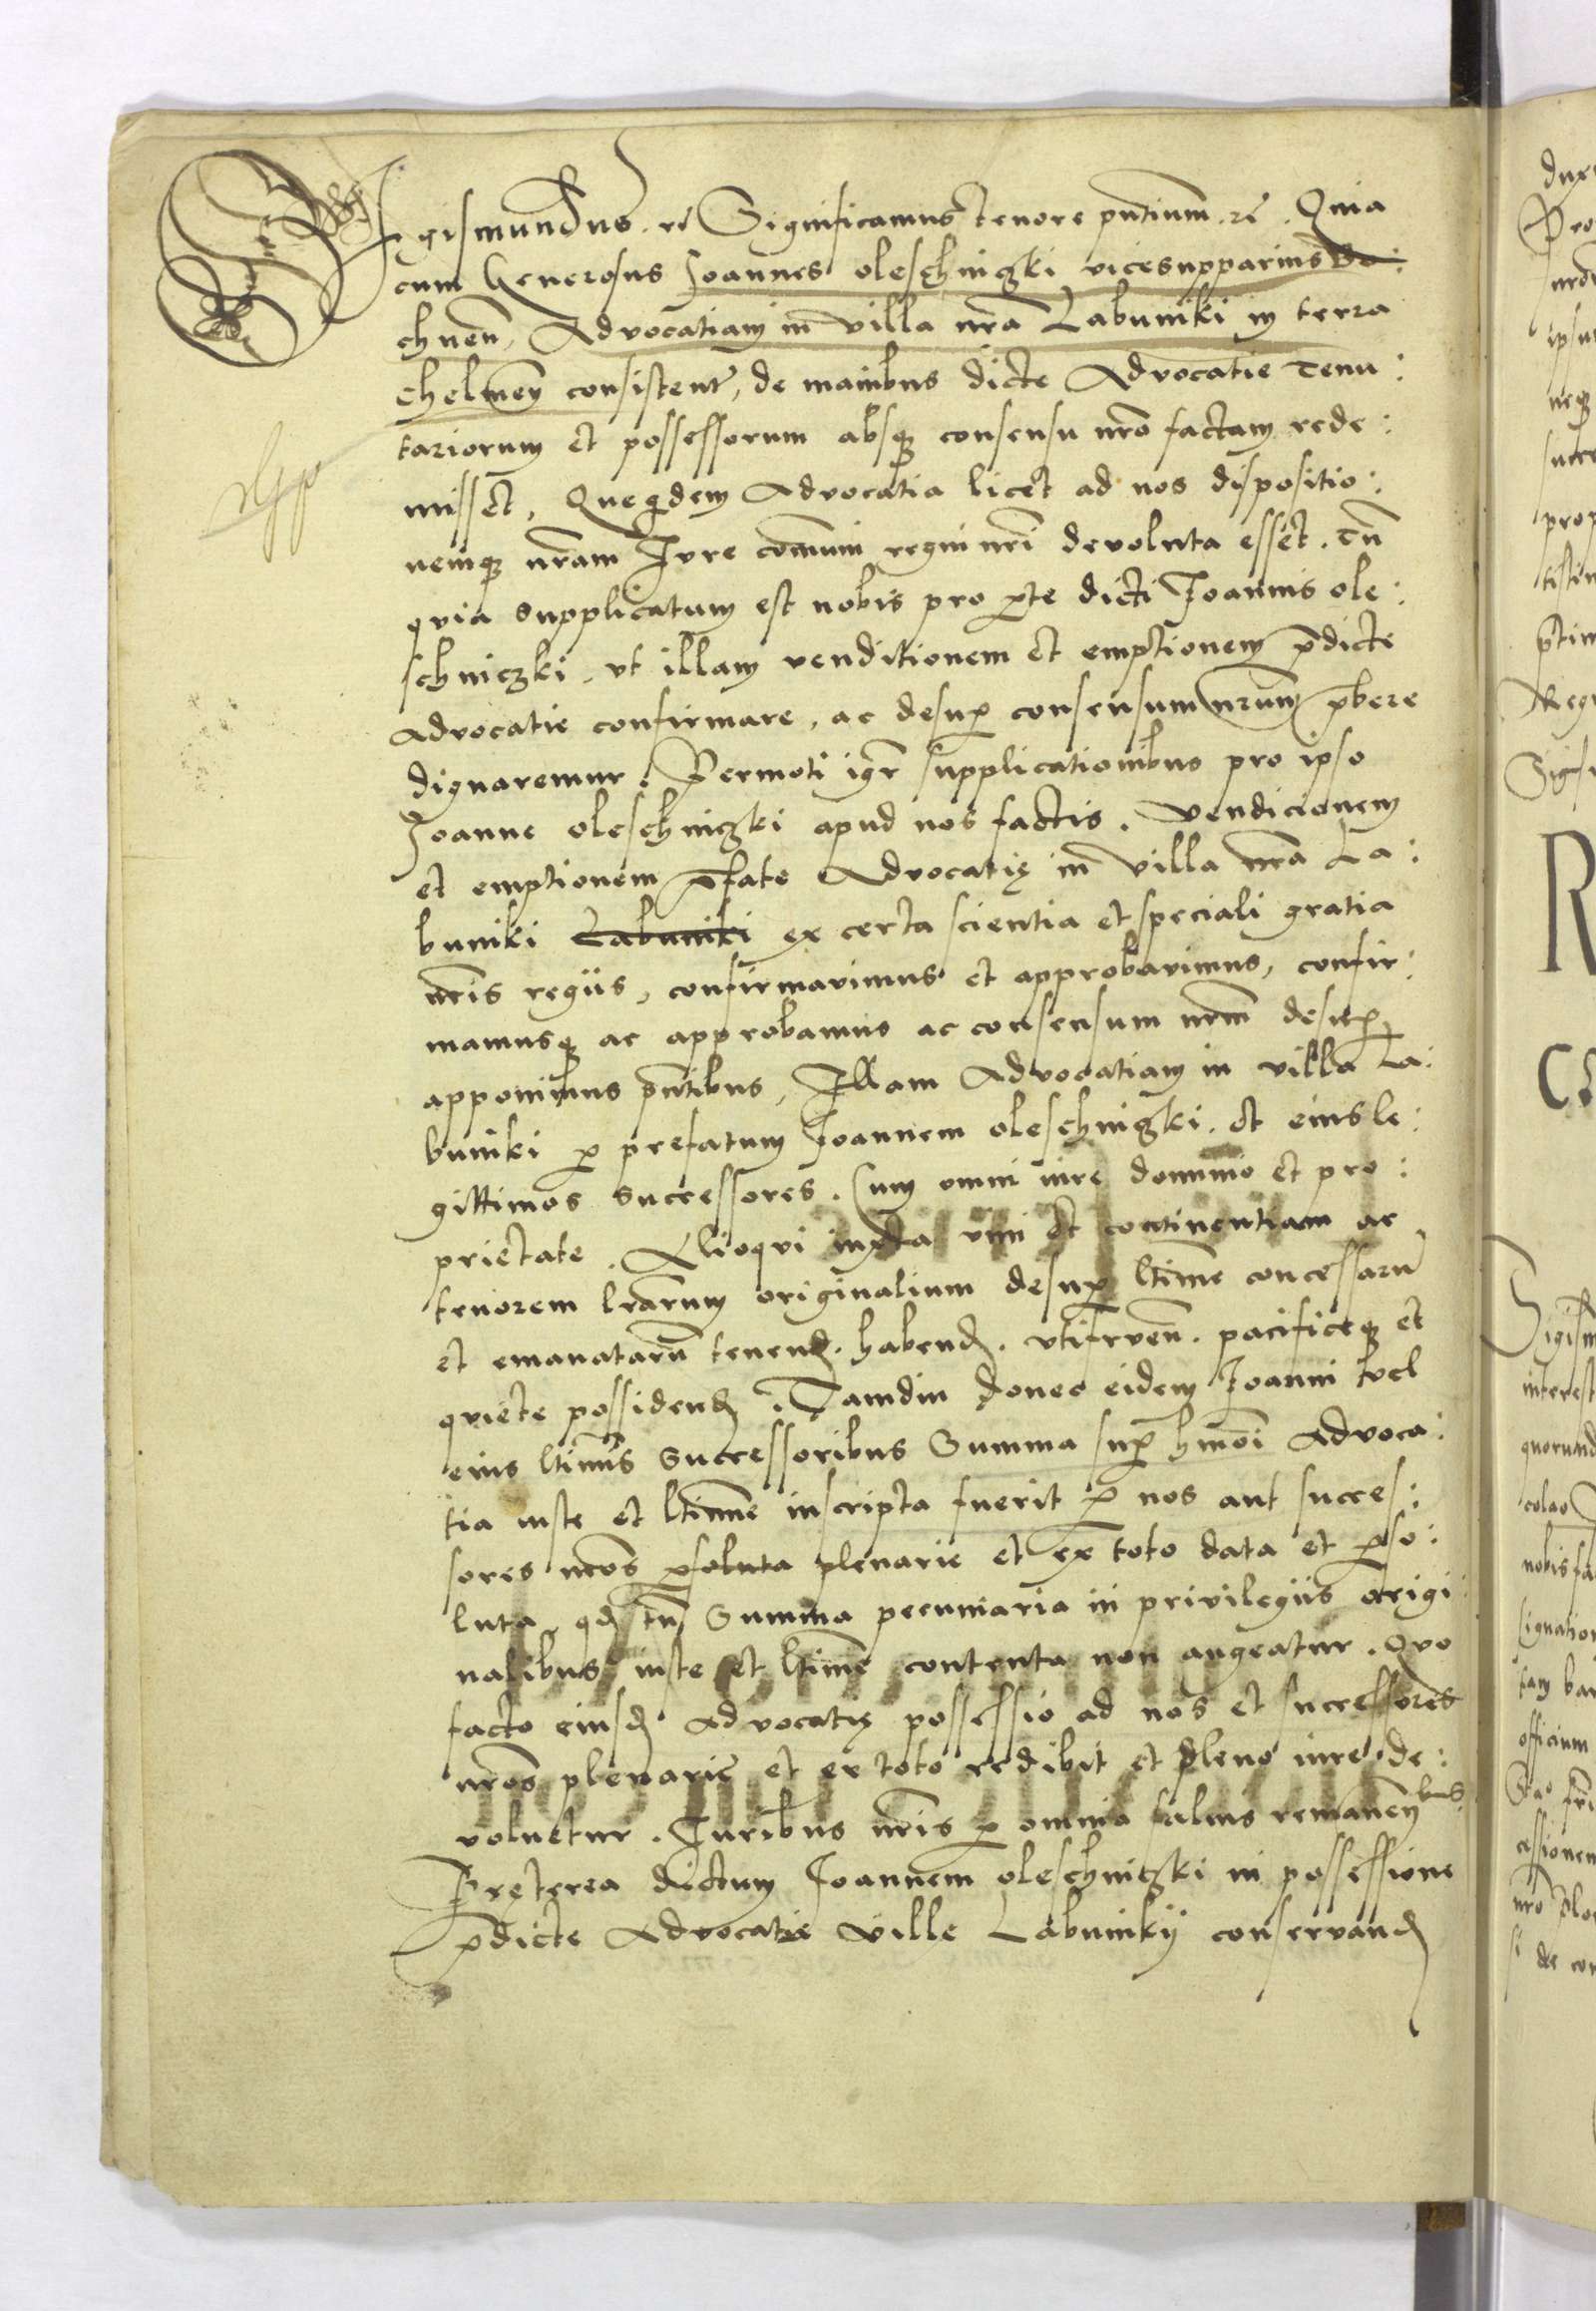 Sigismundus. rc̄ Significamus tenore pn̄tium. rc̄. Quia
cum Generosus Joannes oleschniczki vicesupparius Bo:
chnen̄, Advocatiam in villa nr̄a Labuniki in terra
Chelmen̄ consisten̄, de manibus dicte Advocatie Tenu:
tariorum et possessorum absq3 consensu nr̄o factam rede:
misset, Queq̄dem Advocatia licet ad nos dispositio:
nemq3 nr̄am Jure com̄uni regni nr̄i devoluta esset. Tn̄
quia supplicatum est nobis pro p̄te dicti Joannis ole:
schniczki, vt illam venditionem et emptionem p̄dicte
Advocatie confirmare, ac desup̄ consensum nr̄um p̄bere
dignaremur. Permoti igr̄ supplicationibus pro ipso
Joanne oleschniczki apud nos factis. Vendicionem
et emptionem p̄fate Advocatię in villa nr̄a La:
buniki Labuniki ex certa scientia et speciali gratia
nr̄is regiis, confirmavimus et approbavimus, confir:
mamusq3 ac approbamus ac consensum nr̄m desup̄
apponimus pn̄tibus, Illam Advocatiam in villa La:
buniki p̄ prefatum Joannem oleschniczki. et eius le:
gittimos successores. Cum omni iure dominio et pro:
prietate. Alioqui iuxta vim et continentiam ac
tenorem lr̄arum originalium desup̄ ltīme concessarū
et emanatarū tenend. habend. vtifruen̄. pacificeq3 et
quiete possidend. Tamdiu donec eidem Joanni vel
eius ltīmis Successoribus Summa sup̄ hmōi Advoca:
tia iuste et ltīme inscripta fuerit p̄ nos aut succes:
sores nr̄os p̄soluta plenarie et ex toto data et p̄so:
luta, qd tn̄ Summa pecuniaria in privilegiis origi:
nalibus iuste et ltīme contenta non augeatur. Quo
facto eiusd Advocatię possessio ad nos et successores
nr̄os plenarie et ex toto redibit et pleno iure de:
voluetur. Juribus nr̄is p̄ omnia salvis remanen̄ bus
Pręterea dictum Joannem oleschniczki in possessione
p̄dicte Advocatie ville Labunikij conservand